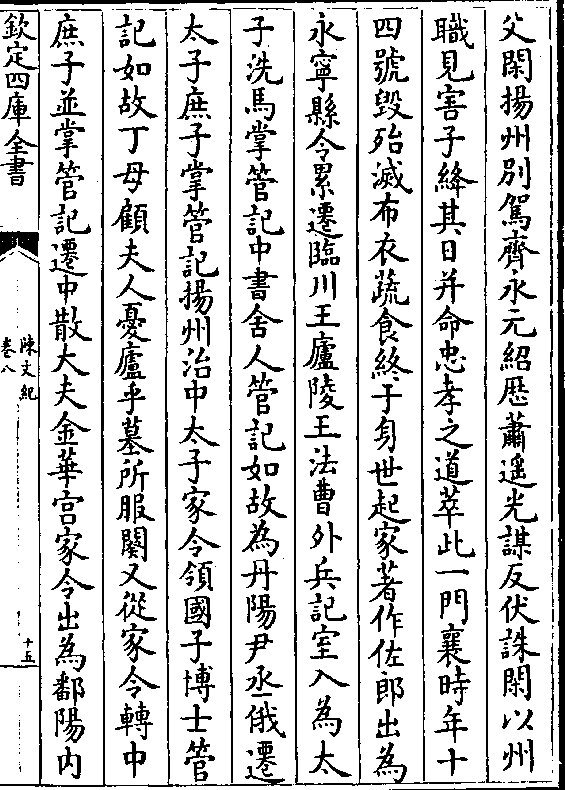 父閑揚州別駕齊永元紹歴蕭遥光謀反伏誅閑以州
職見害子絳其日并命忠孝之道萃此一門襄時年十
四號毁殆滅布衣蔬食終于身世起家著作佐郎出為
永寧縣令累遷臨川王廬陵王法曹外兵記室入為太
子洗馬掌管記中書舍人管記如故為丹陽尹丞俄遷
太子庶子掌管記揚州治中太子家令領國子博士管
記如故丁母顧夫人憂廬乎墓所服闋又從家令轉中
庶子並掌管記遷中散大夫金華宫家令出為鄱陽内
欽定四庫全書
陳文紀
卷八
十五